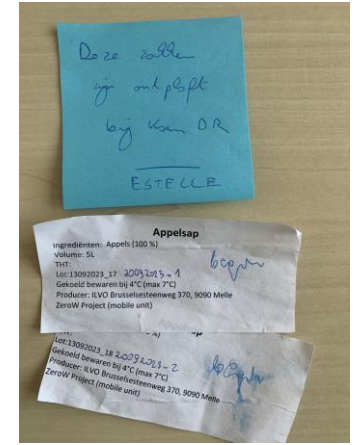 Deze zakken
zijn ontploft
bij Koen DR
ESTELLE
Appelsap
Ingrediënten: Appels (100 %)
Volume: 5L
THT:
Lot:13092023_17 20092023-1
Gekoeld bewaren bij 4°C (max 7°C)
Producer: ILVO Brusselsesteenweg 370, 9090 Melle
ZeroW Project (mobile unit)
THT:
Lot:13092023_18 20092023-2
Gekoeld bewaren bij 4°C (max 7°C)
Producer: ILVO Brusselsesteenweg 370, 9090 Melle
ZeroW Project (mobile unit)